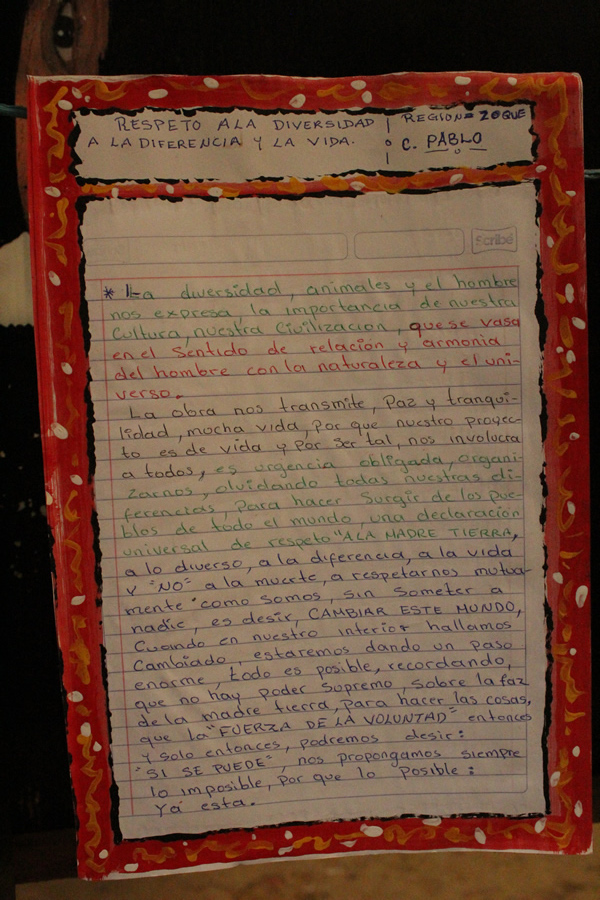 RESPETO A LA DIVERSIDAD
A LA DIFERENCIA Y LA VIDA.
REGION= ZOQUE
C. PABLO
Scribe
* La diversidad, animales y el hombre
nos expresa, la importancia de nuestra
Cultura, nuestra Civilización, que se vasa
en el Sentido de relación y armonia
del hombre con la naturaleza y el uni-
verso.
La obra nos transmite, Paz y tranqui-
lidad, mucha vida, Por que nuestro proyec-
to es de vida y Por ser tal, nos involucra
a todos, es urgencia obligada, organi-
zarnos, olvidando todas nuestras di-
ferencias, Para hacer Surgir de los pue-
blos de todo el mundo, una declaración
universal de respeto "A LA MADRE TIERRA,
a lo diverso, a la diferencia, a la vida
Y "NO" a la muerte, a respetarnos mutua-
mente "como somos, sin someter a
nadie, es desir, CAMBIAR ESTE MUNDO,
Cuando en nuestro interior hallamos
Cambiado, estaremos dando un paso
enorme, todo es posible, recordando,
que no hay poder Supremo, sobre la faz
de la madre tierra, para hacer las cosas,
que la "FUERZA DE LA VOLUNTAD" entonces
Y solo entonces, podremos desir:
"SI SE PUEDE", nos propongamos siempre
lo imposible, por que lo Posible:
Ya esta.